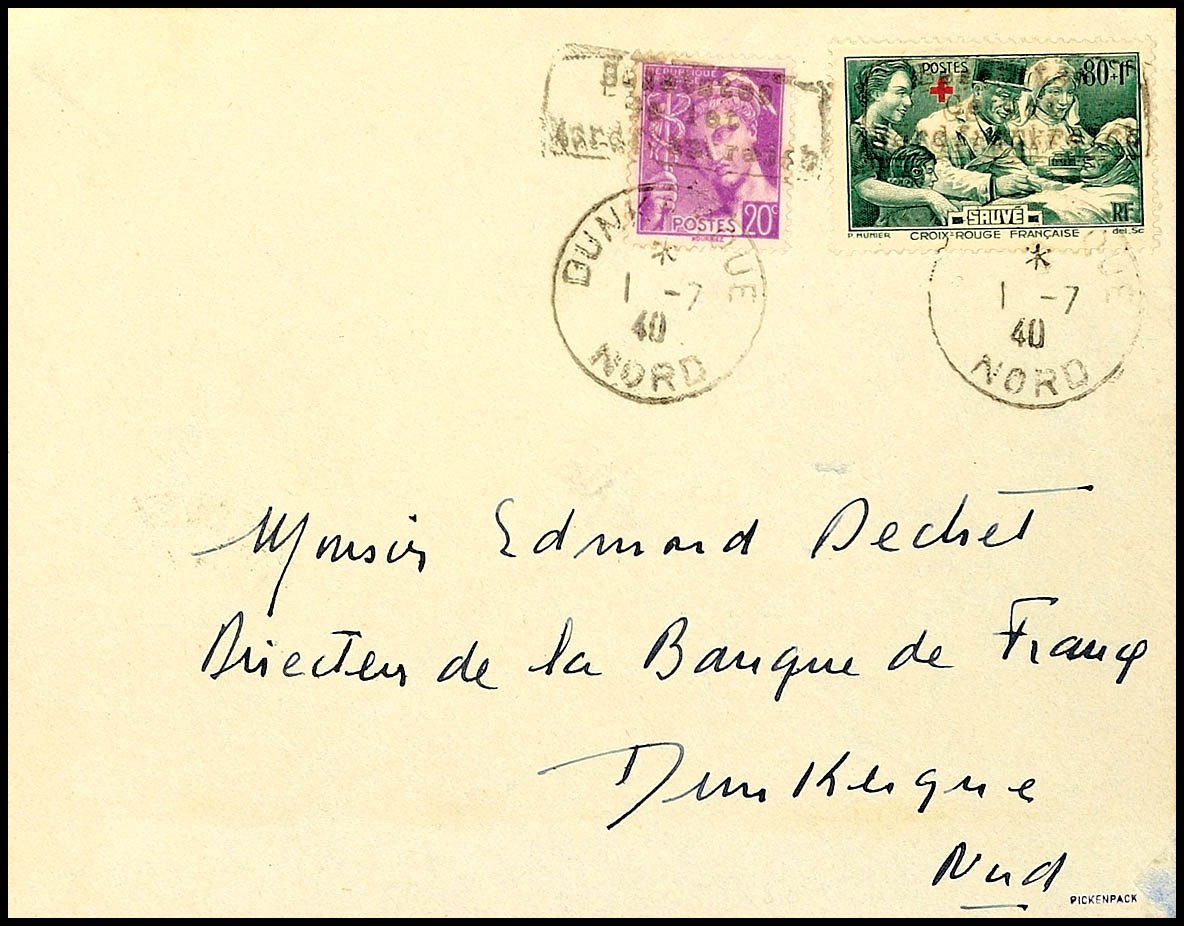 Besetztes
Gebiet
Nordfrankreich
RÉPUBLIQUE
POSTES 20c
POSTES
80c+1F
SAUVÉ
RF
P. MUNIER
CROIX-ROUGE FRANÇAISE
del. Sc
DUNKERQUE
*
1 -7
40
NORD
DUNKERQUE
*
1 -7
40
NORD
Monsieur Edmond Dechet
Directeur de la Banque de France
Dunkerque
Nord
PICKENPACK